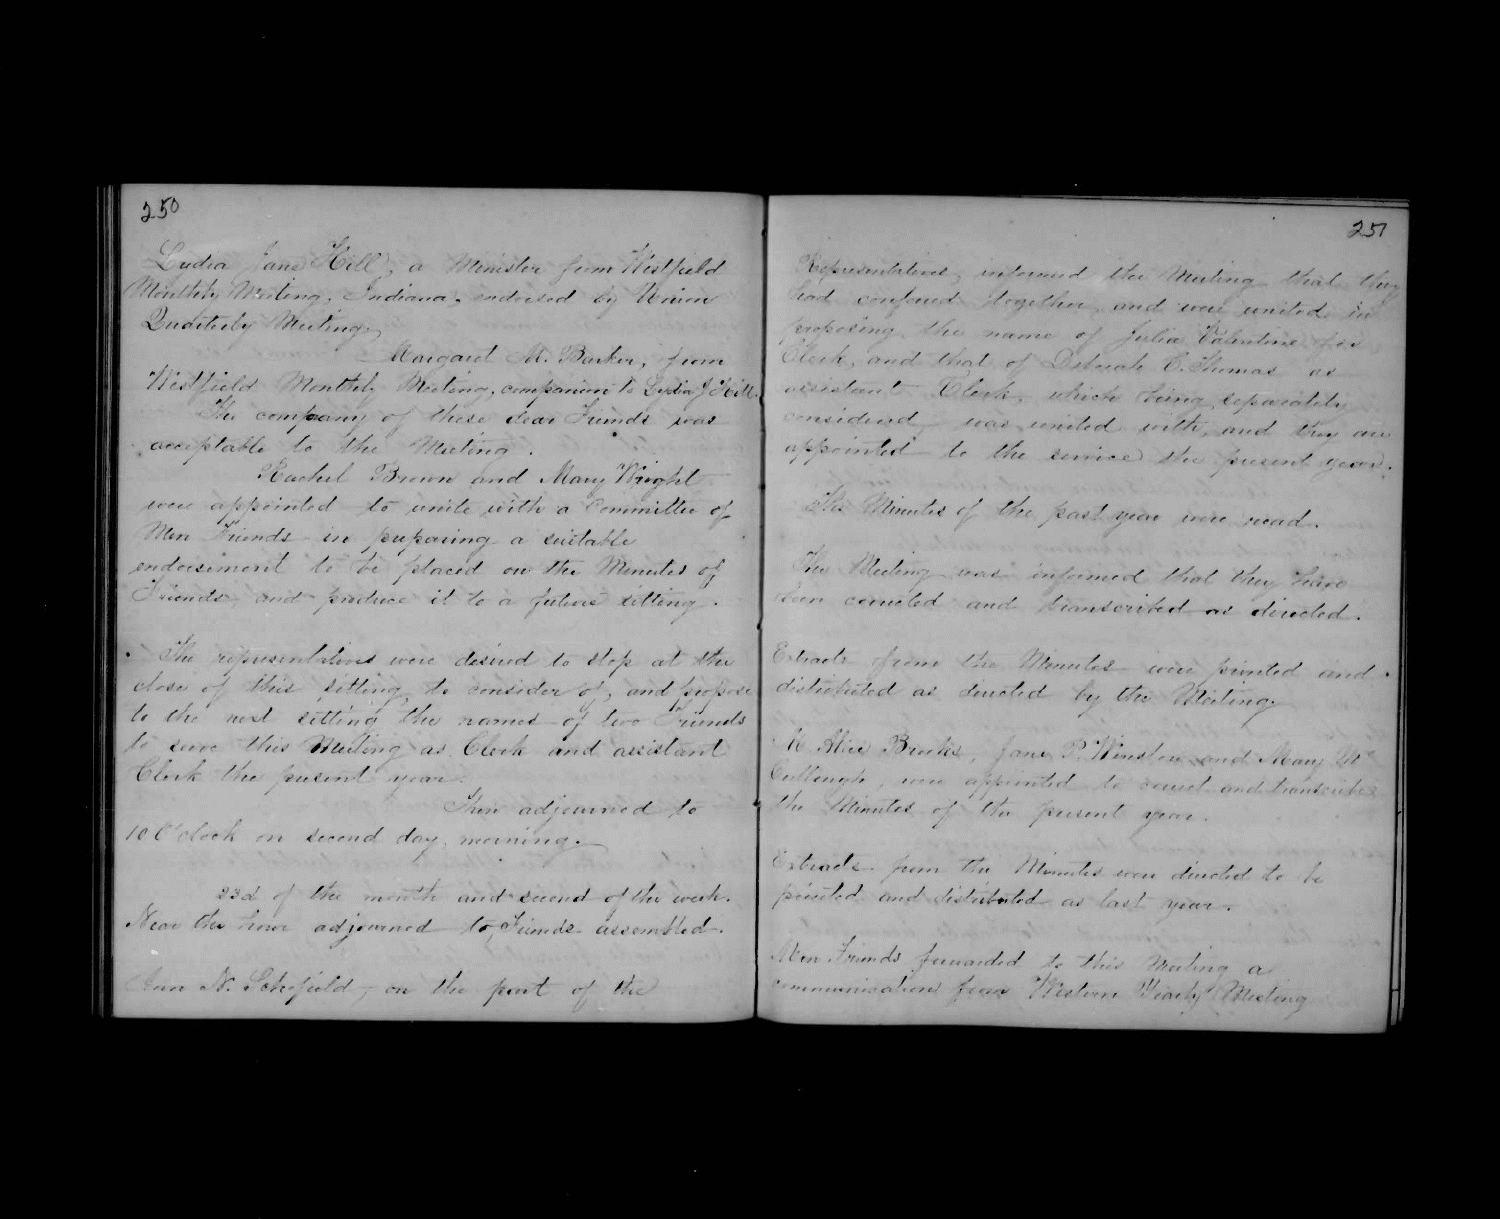 250
Lydia Jane Hill, a Minister from Westfield
Monthly Meeting, Indiana, endorsed by Union
Quarterly Meeting,
Margaret M. Barker, from
Westfield Monthly Meeting, companion to Lydia J Hill.
The company of these dear Friends was
acceptable to the Meeting.
Rachel Brown and Mary Wright
were appointed to unite with a Committee of
Men Friends in preparing a suitable
endorsement to be placed on the Minutes of
Friends, and produce it to a future sitting.
The representatives were desired to stop at the
close of this sitting, to consider of, and propose
to the next sitting the names of two Friends
to serve this Meeting as Clerk and assistant
Clerk the present year.
Then adjourned to
10 O'clock on second day, morning.
23d of the month and second of the week.
Near the hour adjourned to, Friends assembled.
Ann N. Schofield, on the part of the
251
Representatives, informed the Meeting that they
had confered together, and were united in
proposing the name of Julia Valentine for
Clerk, and that of Deborah C. Thomas as
assistant Clerk, which being separately
considered, was united with, and they are
appointed to the service the present year.
The Minutes of the past year were read.
The Meeting was informed that they have
been corrected and transcribed as directed.
Extracts from the Minutes were printed and
distributed as directed by the Meeting.
M. Alice Brooks, Jane P. Winston and Mary Mc
Cullough, were appointed to correct and transcribe
the Minutes of the present year.
Extracts from the Minutes were directed to be
printed and distributed as last year.
Men Friends forwarded to this Meeting a
communication from Western Yearly Meeting